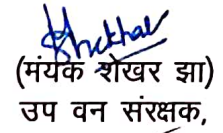 (मंयक शेखर झा)
उप वन संरक्षक,